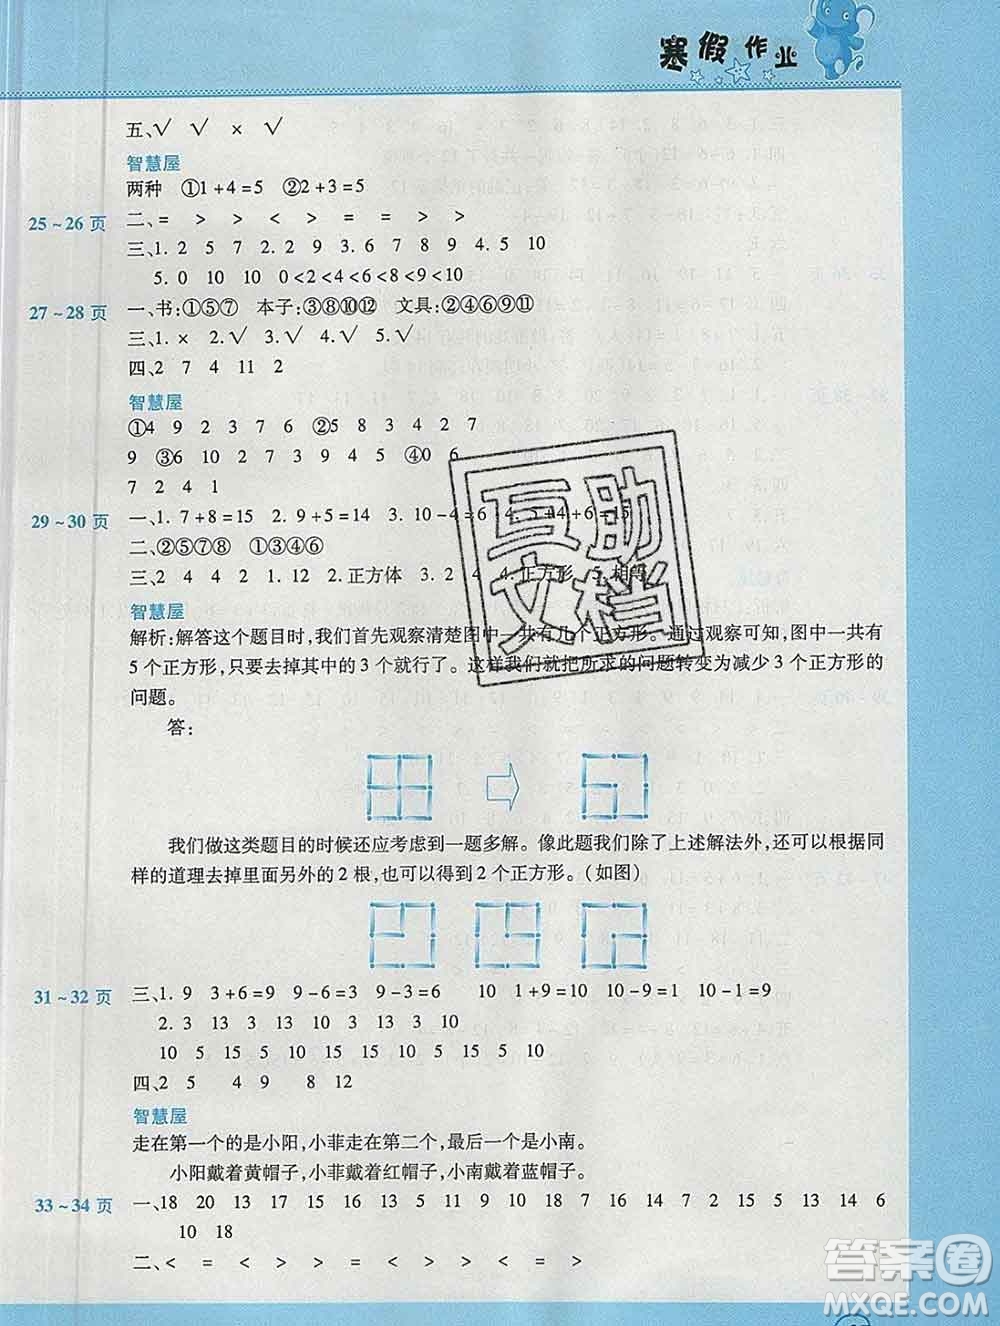 寒假作业
五、√ √ × √
智慧屋
两种 ①1+4=5 ②2+3=5
25~26页 二、= > > < > < = = > >
三、1. 2 5 7 2. 2 9 3. 8 7 9 4. 5 10
5. 0 10 10 0<2<4<6<8<9<10
27~28页 一、书:①⑤⑦ 本子:③⑧⑩⑫ 文具:②④⑥⑨⑪
三、1. × 2. √ 3. √ 4. √ 5. √
四、2 7 4 11 2
智慧屋
①4 9 2 3 7 6 ②5 8 3 4 2 7
9 ③6 10 2 7 3 4 9 5 ④0 6
7 2 4 1
29~30页 一、1. 7+8=15 2. 9+5=14 3. 10-4=6 4+5+6=15
二、②⑤⑦⑧ ①③④⑥
三、2 4 2 1 2. 正方体 3. 2 4 4. 正方形 5. 相等
智慧屋
解析:解答这个题目时,我们首先观察清楚图中一共有几个正方形。通过观察可知,图中一共有
5个正方形,只要去掉其中的3个就行了。这样我们就把所求的问题转变为减少3个正方形的
问题。
答:
我们做这类题目的时候还应考虑到一题多解。像此题我们除了上述解法外,还可以按照同
样的道理去掉里面另外的2根,也可以得到2个正方形。(如图)
31~32页 三、1. 9 3+6=9 9-6=3 9-3=6 10 1+9=10 10-9=1 10-1=9
2. 3 13 3 13 10 3 13 3 10
10 5 15 5 10 15 10 5 15 5 10
四、2 5 4 9 8 12
智慧屋
走在第一个的是小阳,小菲走在第二个,最后一个是小南。
小阳戴着黄帽子,小菲戴着红帽子,小南戴着蓝帽子。
33~34页 一、18 20 13 17 15 10 4 13 5 11 9 10 9 17 2 15 5 13 14 6
10 18
二、< = < < > < = > > < = >
互助文档
答案圈
MXQE.COM